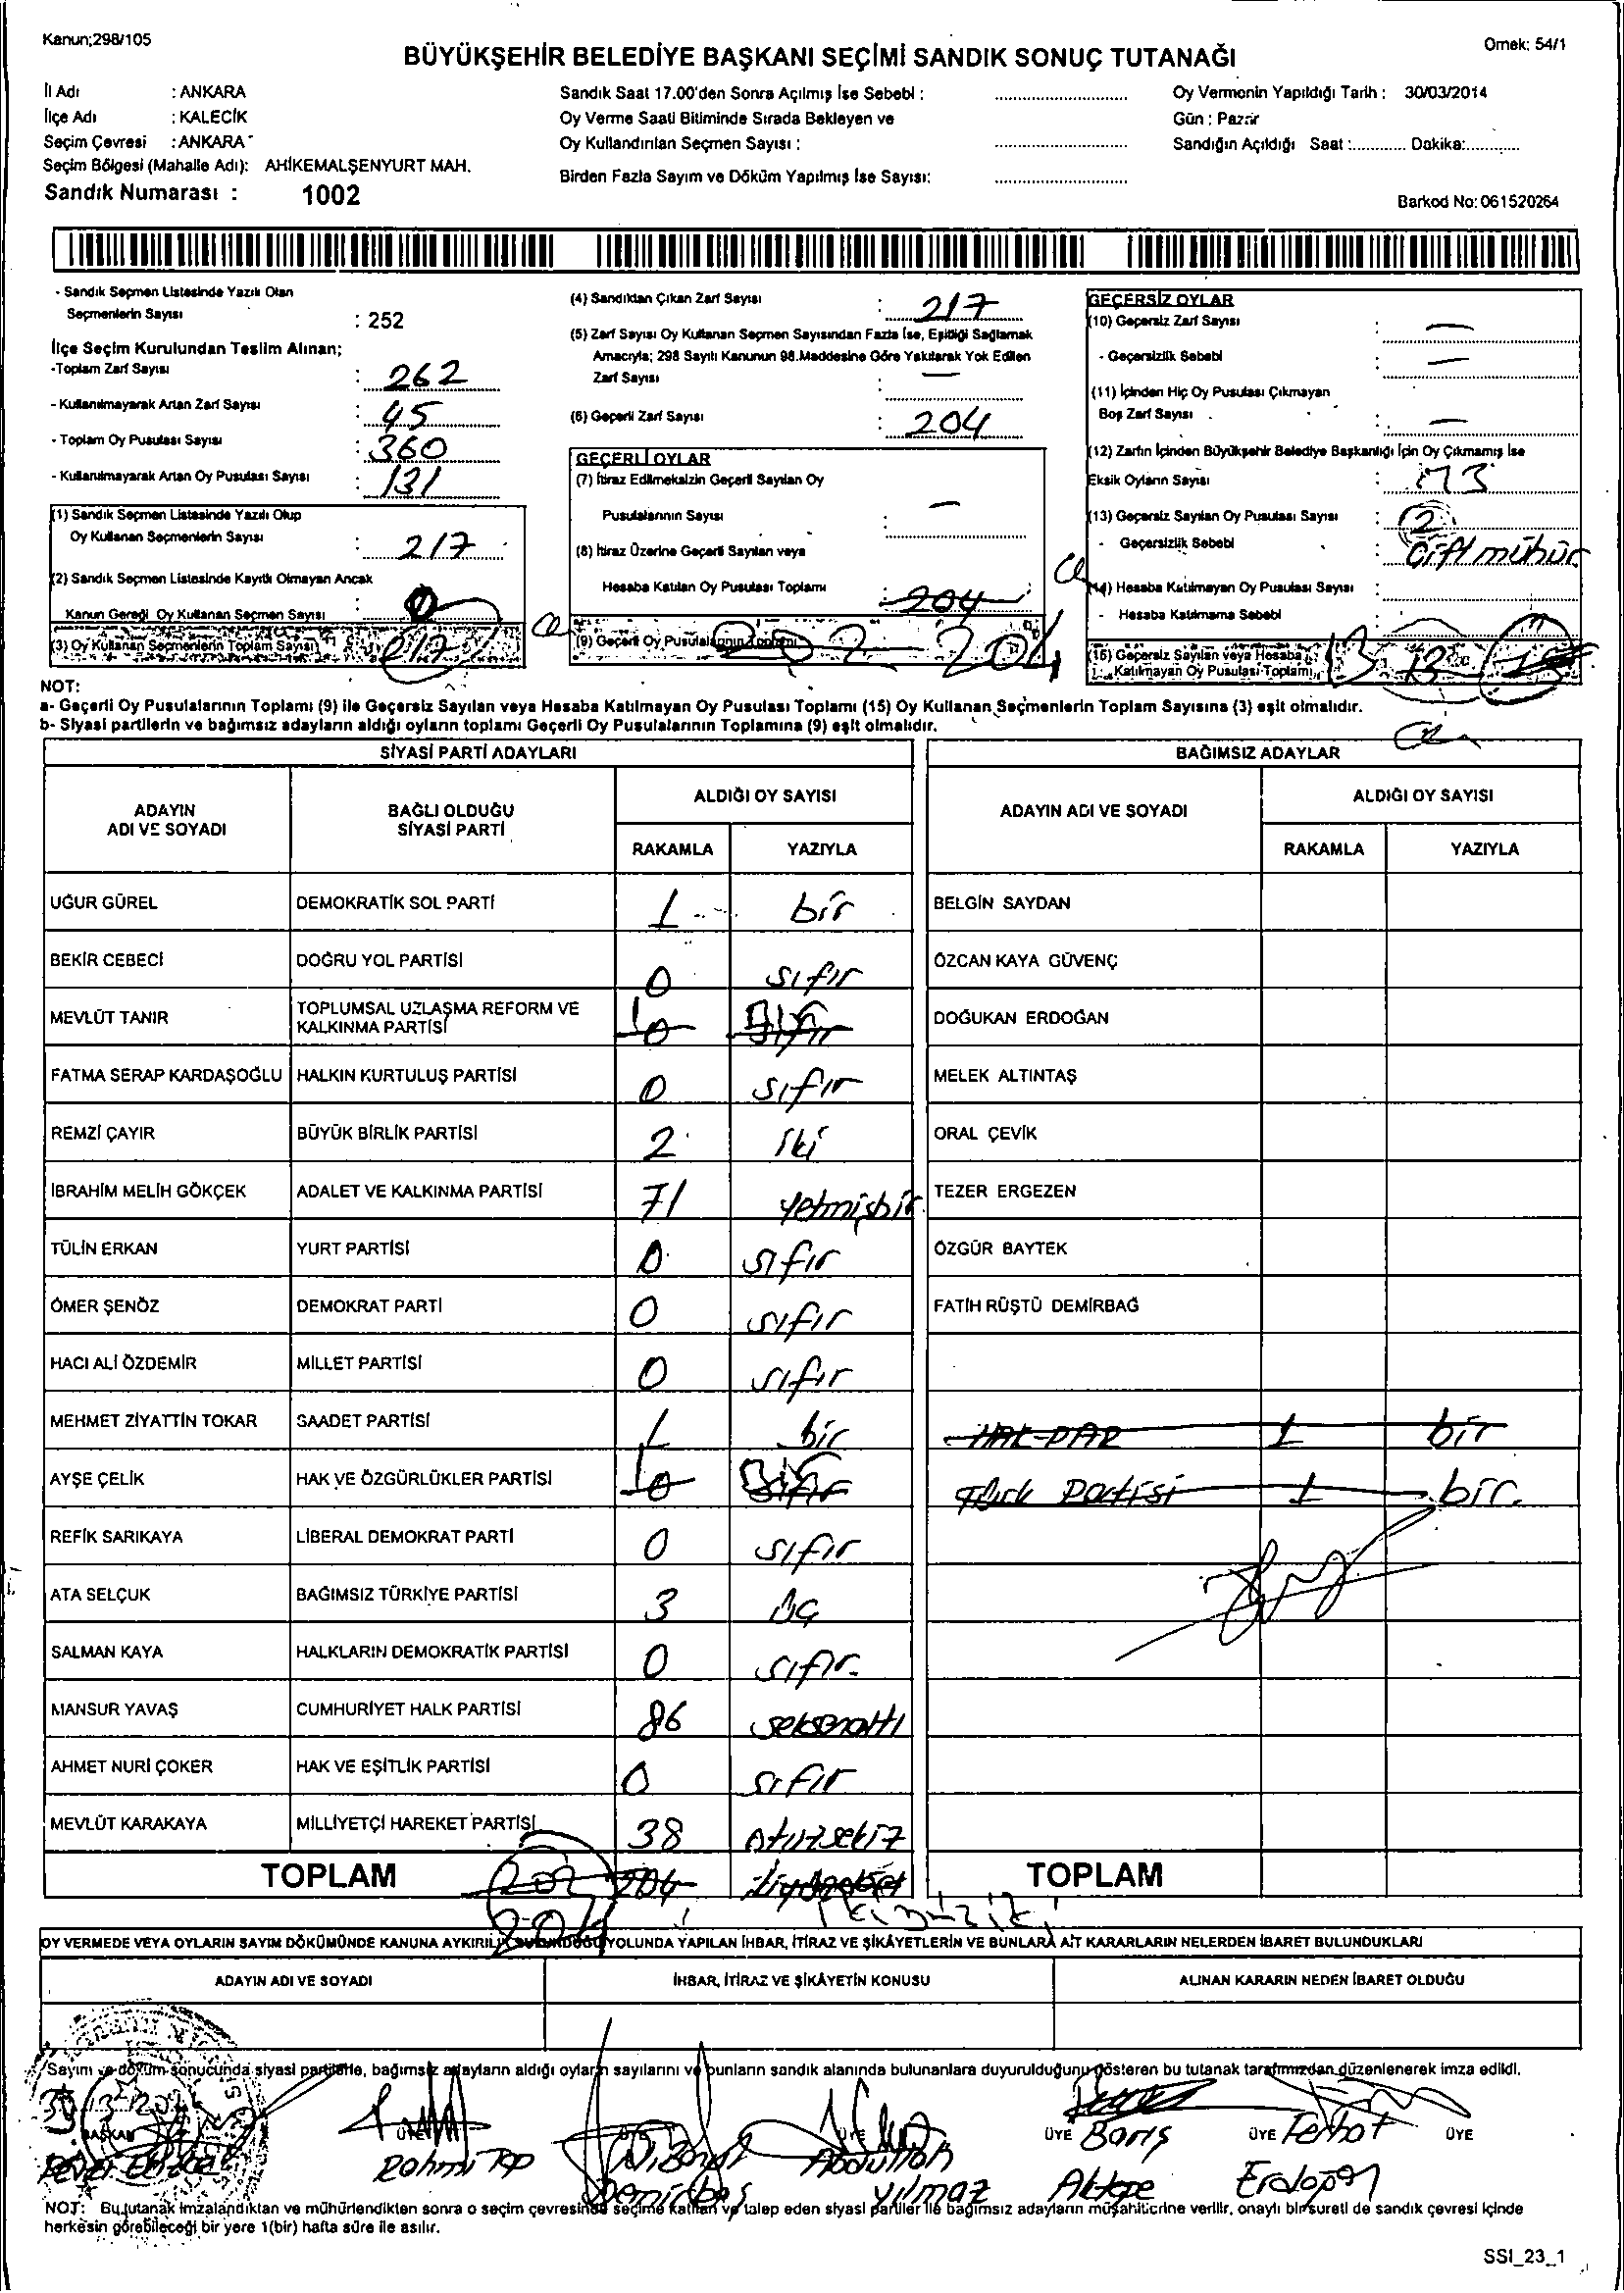 Kanun;298/105
Örnek: 54/1
BÜYÜKŞEHİR BELEDİYE BAŞKANI SEÇİMİ SANDIK SONUÇ TUTANAĞI
İl Adı : ANKARA
İlçe Adı : KALECİK
Seçim Çevresi : ANKARA
Seçim Bölgesi (Mahalle Adı): AHİKEMALŞENYURT MAH.
Sandık Numarası : 1002
Sandık Saat 17.00'den Sonra Açılmış İse Sebebi :
Oy Verme Saati Bitiminde Sırada Bekleyen ve
Oy Kullandırılan Seçmen Sayısı :
Birden Fazla Sayım ve Döküm Yapılmış İse Sayısı:
Oy Vermenin Yapıldığı Tarih : 30/03/2014
Gün : Pazar
Sandığın Açıldığı Saat :............ Dakika:............
Barkod No: 061520264
- Sandık Seçmen Listesinde Yazılı Olan
Seçmenlerin Sayısı : 252
İlçe Seçim Kurulundan Teslim Alınan;
-Toplam Zarf Sayısı : 262
- Kullanılmayarak Artan Zarf Sayısı : 45
- Toplam Oy Pusulası Sayısı : 360
- Kullanılmayarak Artan Oy Pusulası Sayısı : 131
(1) Sandık Seçmen Listesinde Yazılı Olup
Oy Kullanan Seçmenlerin Sayısı : 217
(2) Sandık Seçmen Listesinde Kayıtlı Olmayan Ancak
Kanun Gereği Oy Kullanan Seçmen Sayısı : 0
(3) Oy Kullanan Seçmenlerin Toplam Sayısı 217
(4) Sandıktan Çıkan Zarf Sayısı : 217
(5) Zarf Sayısı Oy Kullanan Seçmen Sayısından Fazla İse, Eşitliği Sağlamak
Amacıyla; 298 Sayılı Kanunun 98.Maddesine Göre Yakılarak Yok Edilen
Zarf Sayısı : —
(6) Geçerli Zarf Sayısı : 204
GEÇERLİ OYLAR
(7) İtiraz Edilmeksizin Geçerli Sayılan Oy
Pusulalarının Sayısı : —
(8) İtiraz Üzerine Geçerli Sayılan veya
Hesaba Katılan Oy Pusulası Toplamı : 204
(9) Geçerli Oy Pusulalarının Toplamı 202 204
GEÇERSİZ OYLAR
(10) Geçersiz Zarf Sayısı : —
- Geçersizlik Sebebi : —
(11) İçinden Hiç Oy Pusulası Çıkmayan
Boş Zarf Sayısı : —
(12) Zarfın İçinden Büyükşehir Belediye Başkanlığı İçin Oy Çıkmamış İse
Eksik Oyların Sayısı :
(13) Geçersiz Sayılan Oy Pusulası Sayısı : 2
- Geçersizlik Sebebi : Çift mühür
(14) Hesaba Katılmayan Oy Pusulası Sayısı :
- Hesaba Katılmama Sebebi
(15) Geçersiz Sayılan veya Hesaba
Katılmayan Oy Pusulası Toplamı 13
NOT:
a- Geçerli Oy Pusulalarının Toplamı (9) ile Geçersiz Sayılan veya Hesaba Katılmayan Oy Pusulası Toplamı (15) Oy Kullanan Seçmenlerin Toplam Sayısına (3) eşit olmalıdır.
b- Siyasi partilerin ve bağımsız adayların aldığı oyların toplamı Geçerli Oy Pusulalarının Toplamına (9) eşit olmalıdır.
SİYASİ PARTİ ADAYLARI
ADAYIN ADI VE SOYADI
BAĞLI OLDUĞU SİYASİ PARTİ
ALDIĞI OY SAYISI
RAKAMLA YAZIYLA
UĞUR GÜREL DEMOKRATİK SOL PARTİ 1 bir
BEKİR CEBECİ DOĞRU YOL PARTİSİ 0 sıfır
MEVLÜT TANIR TOPLUMSAL UZLAŞMA REFORM VE KALKINMA PARTİSİ 1 0 Bir sıfır
FATMA SERAP KARDAŞOĞLU HALKIN KURTULUŞ PARTİSİ 0 sıfır
REMZİ ÇAYIR BÜYÜK BİRLİK PARTİSİ 2 iki
İBRAHİM MELİH GÖKÇEK ADALET VE KALKINMA PARTİSİ 71 yetmişbir
TÜLİN ERKAN YURT PARTİSİ 0 sıfır
ÖMER ŞENÖZ DEMOKRAT PARTİ 0 sıfır
HACI ALİ ÖZDEMİR MİLLET PARTİSİ 0 sıfır
MEHMET ZİYATTİN TOKAR SAADET PARTİSİ 1 bir
AYŞE ÇELİK HAK VE ÖZGÜRLÜKLER PARTİSİ 1 0 Bir sıfır
REFİK SARIKAYA LİBERAL DEMOKRAT PARTİ 0 sıfır
ATA SELÇUK BAĞIMSIZ TÜRKİYE PARTİSİ 3 üç
SALMAN KAYA HALKLARIN DEMOKRATİK PARTİSİ 0 sıfır.
MANSUR YAVAŞ CUMHURİYET HALK PARTİSİ 86 seksenaltı
AHMET NURİ ÇOKER HAK VE EŞİTLİK PARTİSİ 0 sıfır
MEVLÜT KARAKAYA MİLLİYETÇİ HAREKET PARTİSİ 38 otuzsekiz
TOPLAM 202 204 ikiyüzdört
204 ikiyüziki
BAĞIMSIZ ADAYLAR
ADAYIN ADI VE SOYADI
ALDIĞI OY SAYISI
RAKAMLA YAZIYLA
BELGİN SAYDAN
ÖZCAN KAYA GÜVENÇ
DOĞUKAN ERDOĞAN
MELEK ALTINTAŞ
ORAL ÇEVİK
TEZER ERGEZEN
ÖZGÜR BAYTEK
FATİH RÜŞTÜ DEMİRBAĞ
HAK-PAR 1 bir
Partisi 1 bir.
TOPLAM
OY VERMEDE VEYA OYLARIN SAYIM DÖKÜMÜNDE KANUNA AYKIRILIK BULUNDUĞU YOLUNDA YAPILAN İHBAR, İTİRAZ VE ŞİKÂYETLERİN VE BUNLARA AİT KARARLARIN NELERDEN İBARET BULUNDUKLARI
ADAYIN ADI VE SOYADI
İHBAR, İTİRAZ VE ŞİKÂYETİN KONUSU
ALINAN KARARIN NEDEN İBARET OLDUĞU
Sayım ve döküm sonucunda siyasi partilerle, bağımsız adayların aldığı oyların sayılarını ve bunların sandık alanında bulunanlara duyurulduğunu gösteren bu tutanak tarafımızdan düzenlenerek imza edildi.
BAŞKAN ÜYE ÜYE ÜYE ÜYE ÜYE ÜYE
Rahmi Top
Demirbaş
Abdullah Yılmaz
Barış Aktepe
Ferhat Erdoğan
NOT: Bu tutanak imzalandıktan ve mühürlendikten sonra o seçim çevresinde seçime katılan ve talep eden siyasi partiler ile bağımsız adayların müşahitlerine verilir, onaylı bir sureti de sandık çevresi içinde
herkesin görebileceği bir yere 1(bir) hafta süre ile asılır.
SSI_23_1